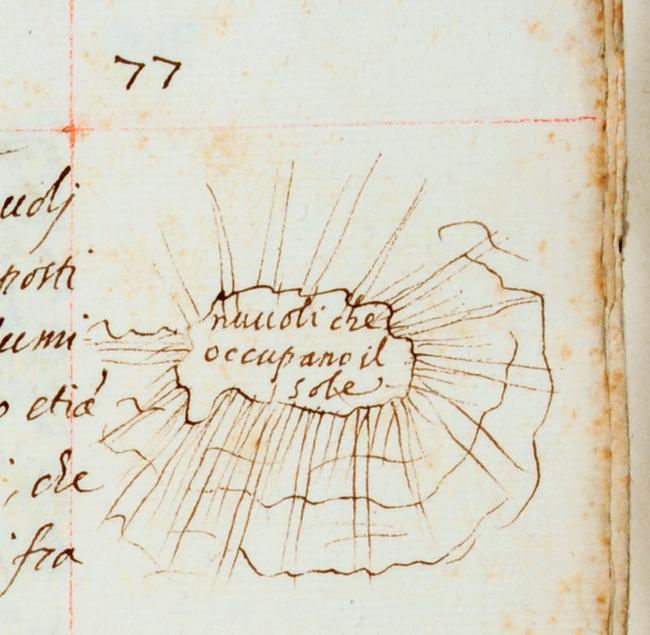 77
uuoli
posti
lumi
o etiā
, che
fra
nuuoli che
occupano il
sole